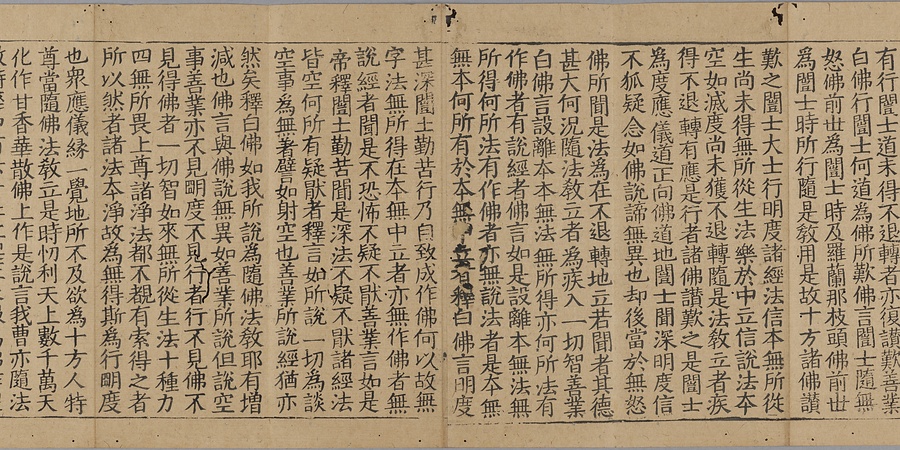 有行闓士道未得不退轉者亦復讚歎無
白佛行闓士何道為佛所歎佛言闓士隨無
怒佛前世為闓士時及羅蘭那枝頭佛前世
為闓士時所行隨是敎用是故十方諸佛讃
歎之闓士大士行明度諸經法信本無所從
生尚未得無所從生法樂於中立信說法本
空如滅度尚未獲不退轉隨是法敎立者疾
得不退轉有應是行者諸佛讃歎之是闓士
為度應儀道正向佛道地闓士聞深明度信
不狐疑念如佛說諦無異也却後當於無怒
佛所聞是法為在不退轉地立若聞者其德
甚大何況隨法敎立者為疾入一切智善業
白佛言設離本本無法無所得亦何所法有
作佛者有說經者佛言如是設離本無法無
所得何所法有作佛者亦無說法者是本無
無本何所有於本無立者釋白佛言明度
甚深闓士勤苦行乃自致成作佛何以故無
字法無所得在本無中立者亦無作佛者無
說經者聞是不恐怖不疑不猒善業言如是
帝釋闓士勤苦聞是深法不疑不猒諸經法
皆空何所有疑猒者釋言如所說一切為談
空事為無所著譬如射空也善業所說經猶亦
然矣釋白佛如我所說為隨佛法敎耶有增
減也佛言與佛說無異如善業所說但說空
事善業亦不見明度不見行者行不見佛不
見得佛者一切智如來無所從生法十種力
四無所畏上尊諸淨法都不覩有索得之者
所以然者諸法本淨故為無得斯為行明度
也衆應儀緣一覺地所不及欲為十方人特
尊當隨佛法敎立是時忉利天上數千萬天
化作甘香華散佛上作是說言我曹亦隨法